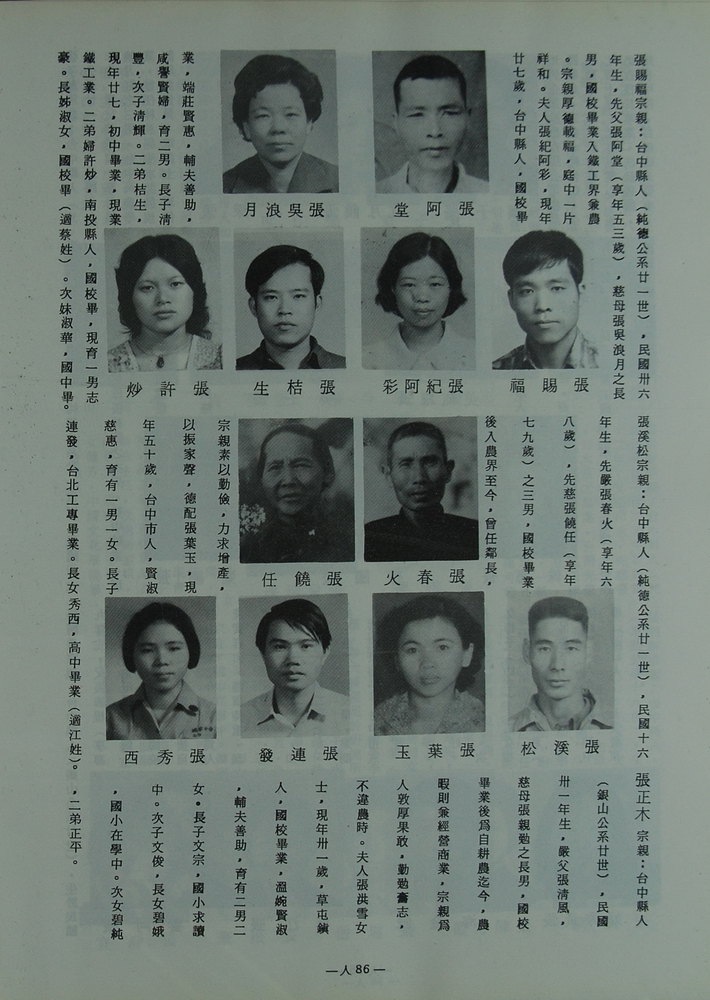 張賜福宗親：台中縣人（純德公系廿一世），民國卅六
年生，先父張阿堂（享年五三歲），慈母張吳浪月之長
男，國校畢業入鐵工界兼農
。宗親厚德載福，庭中一片
祥和。夫人張紀阿彩，現年
廿七歲，台中縣人，國校畢
業，端莊賢惠，輔夫善助，
咸譽賢婦，育二男。長子清
豐，次子清輝。二弟桔生，
現年廿七，初中畢業，現業
鐵工業。二弟婦許炒，南投縣人，國校畢，現育一男志
豪。長姊淑女，國校畢（適蔡姓）。次妹淑華，國中畢。
張阿堂
張吳浪月
張賜福
張紀阿彩
張桔生
張許炒
張溪松宗親：台中縣人（純德公系廿一世），民國十六
年生，先嚴張春火（享年六
八歲），先慈張饒任（享年
七九歲）之三男，國校畢業
後入農界至今，曾任鄰長，
宗親素以勤儉，力求增產，
以振家聲，德配張葉玉，現
年五十歲，台中市人，賢淑
慈惠，育有一男一女。長子
連發，台北工專畢業。長女秀西，高中畢業（適江姓）。
張春火
張饒任
張溪松
張葉玉
張連發
張秀西
張正木宗親：台中縣人
（銀山公系廿世），民國
卅一年生，嚴父張清風，
慈母張親勉之長男，國校
畢業後爲自耕農迄今，農
暇則兼經營商業，宗親爲
人敦厚果敢，勤勉奮志，
不違農時。夫人張洪雪女
士，現年卅一歲，草屯鎮
人，國校畢業，溫婉賢淑
，輔夫善助，育有二男二
女。長子文宗，國小求讀
中。次子文俊，長女碧娥
，國小在學中。次女碧純
，二弟正平。
—人86—